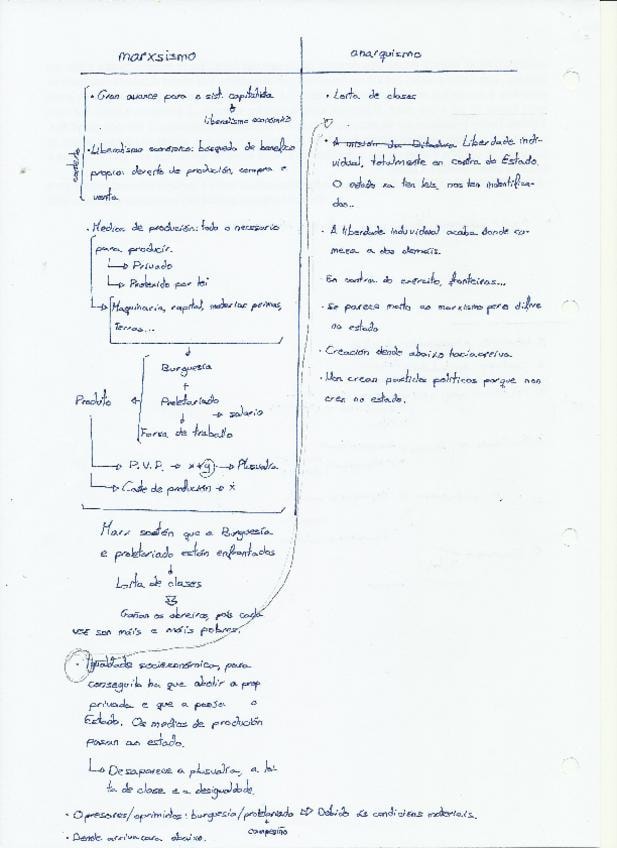 marxsismo
• Gran avance para o sist. capitalista
liberalismo económico
contexto
• Liberalismo económico: búsqueda de beneficio
propio: dereito de produción, compra e
venta.
• Medios de produción: todo o necesario
para producir.
↳ Privado
↳ Protexido por lei
↳ Maquinaria, capital, materias primas,
terras...
Burguesía
+
Produto ← Proletariado
→ salario
Forza de traballo
→ P.V.P. → x + y → Plusvalía
→ Coste de produción → x
Marx sostén que a Burguesía
e proletariado están enfrontados
Loita de clases
Gañan os obreiros, pois cada
vez son máis e máis pobres.
• Igualdade socioeconómica, para
conseguila ha que abolir a prop
privada e que a posea o
Estado. Os medios de produción
pasan ao estado.
↳ Desaparece a plusvalía, a loi-
ta de clase e a desigualdade.
• Opresores/oprimidos: burguesía/proletariado ⇨ Debido ás condicións materiais.
campesiño
• Dende arriva cara abaixo.
anarquismo
• Loita de clases
• A Ditadura Liberdade indi-
vidual, totalmente en contra do Estado.
O estado xa ten leis, nos ten indentifica-
dos..
• A liberdade induvidual acaba donde co-
meza a dos demais.
En contra do exército, fronteiras...
• Se parece moito ao marxismo pero difire
no estado
• Creación dende abaixo hacia arriva
• Non crean partidos políticos porque non
cren no estado.